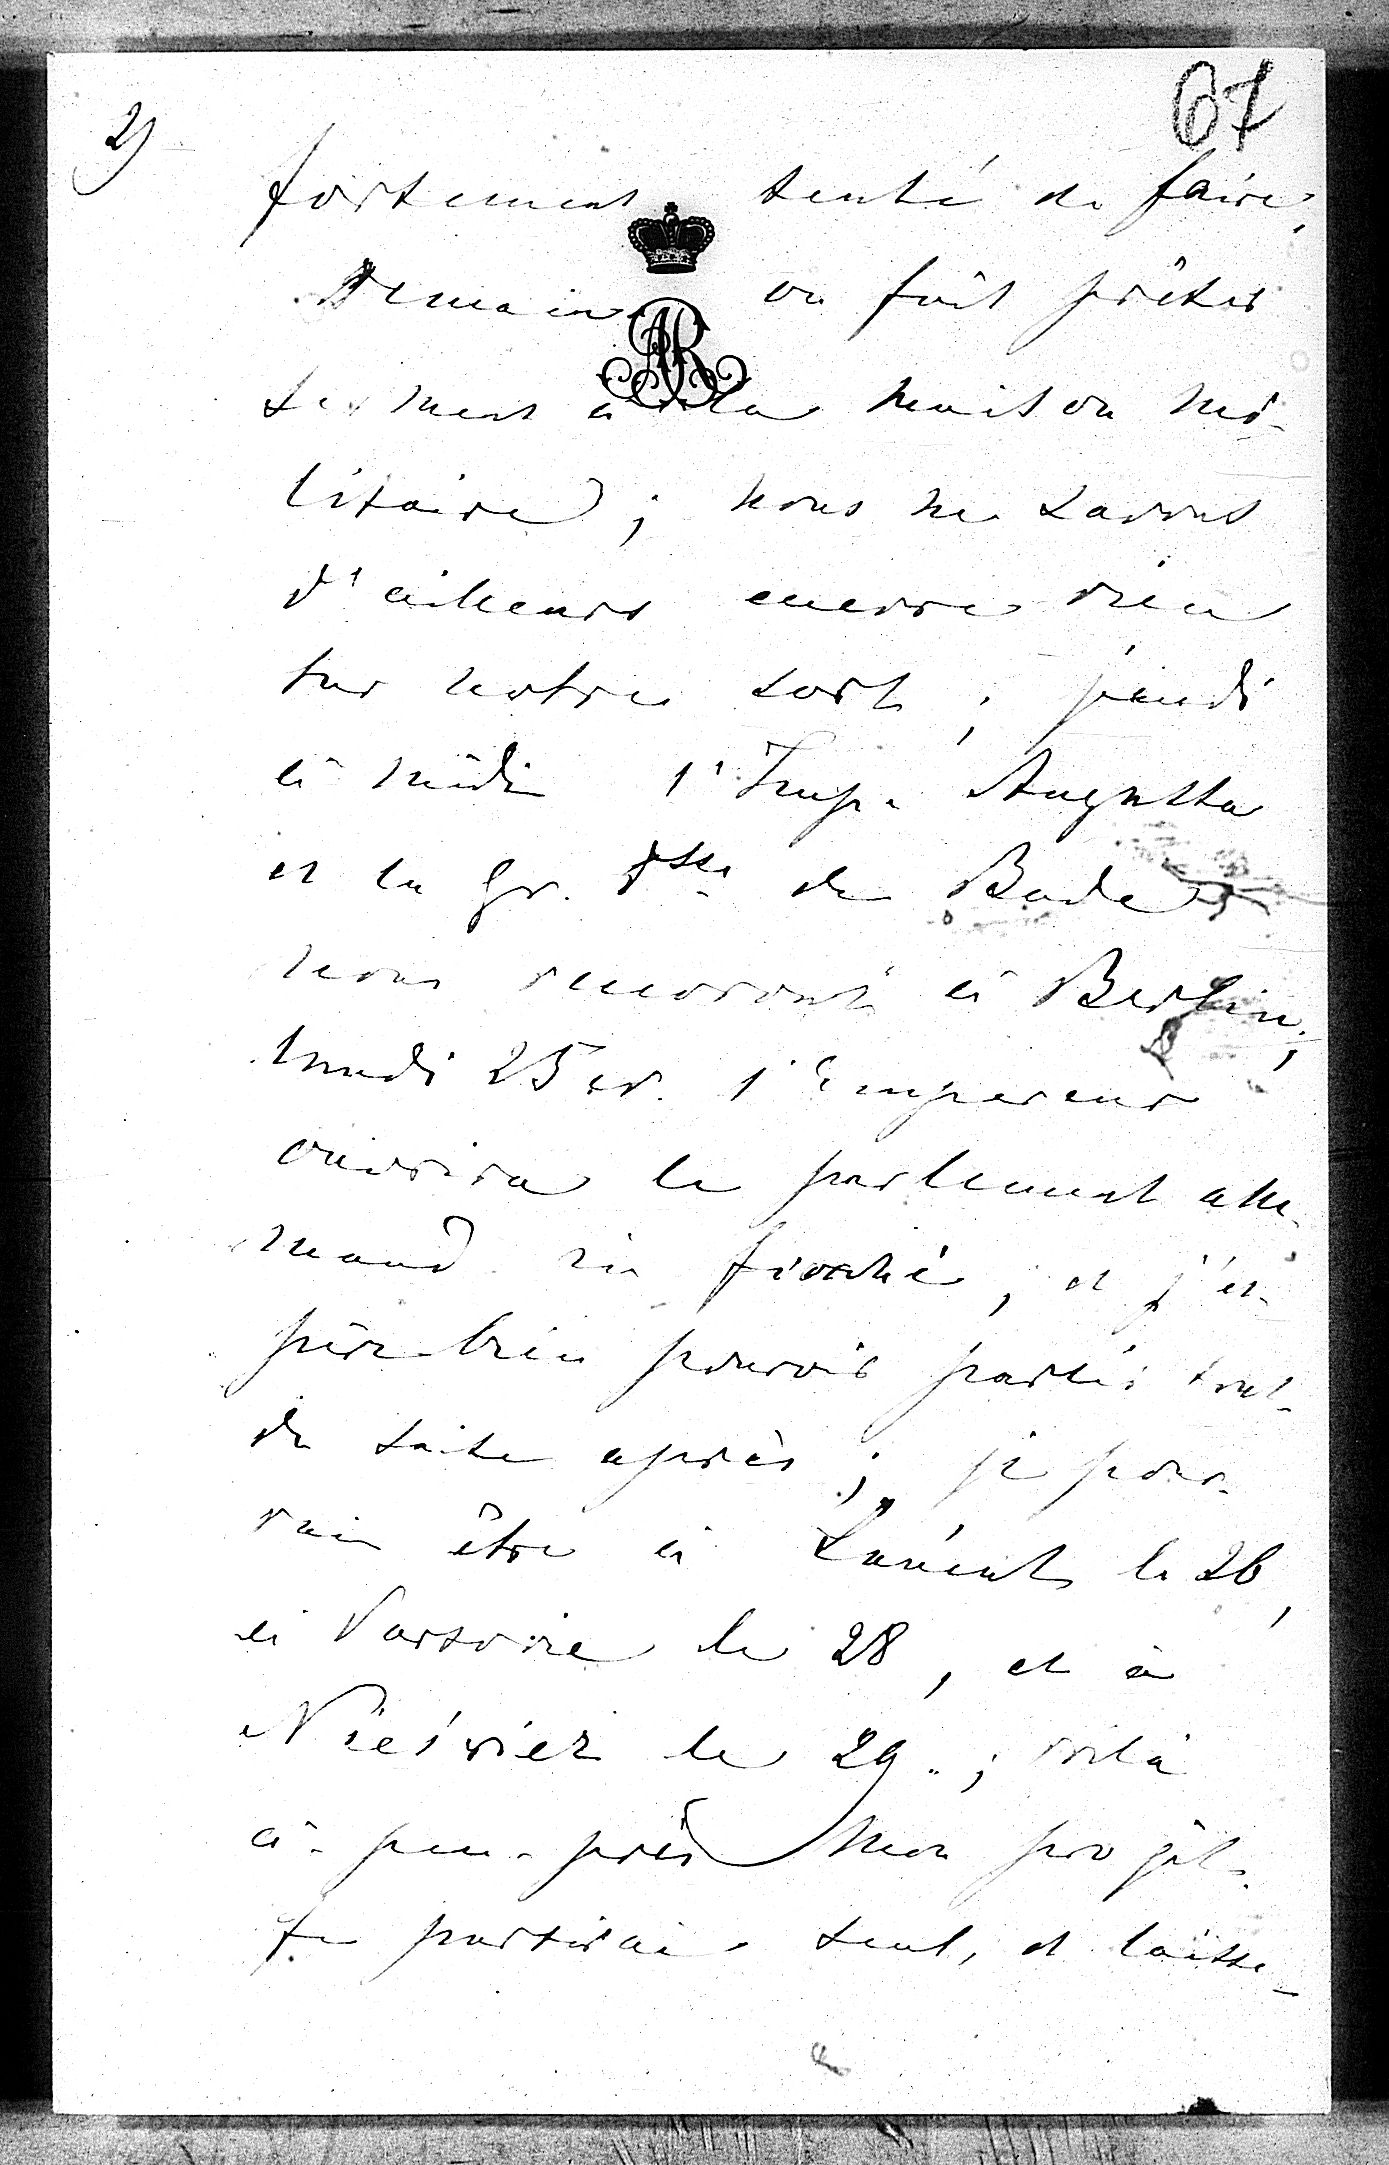 67
2)
fortement tenté de faire,
Demain on fait prêter
serment à la maison mi-
litaire ; nous ne savons
d'ailleurs encore rien
sur notre sort ; jeudi
à midi l'Imp. Augusta
et la Gr. Dsse de Bade
nous recevront à Berlin ;
lundi 25 cr. l'Empereur
ouvrira le parlement alle-
mand en , et j'es-
père bien pouvoir partir tout-
de suite après ; je pour-
rai être à Łańcut le 26,
à Varsovie le 28, et à
Nieśwież le 29. ; voilà
à-peu-près mon projet.
Je partirai seul, et laisse-